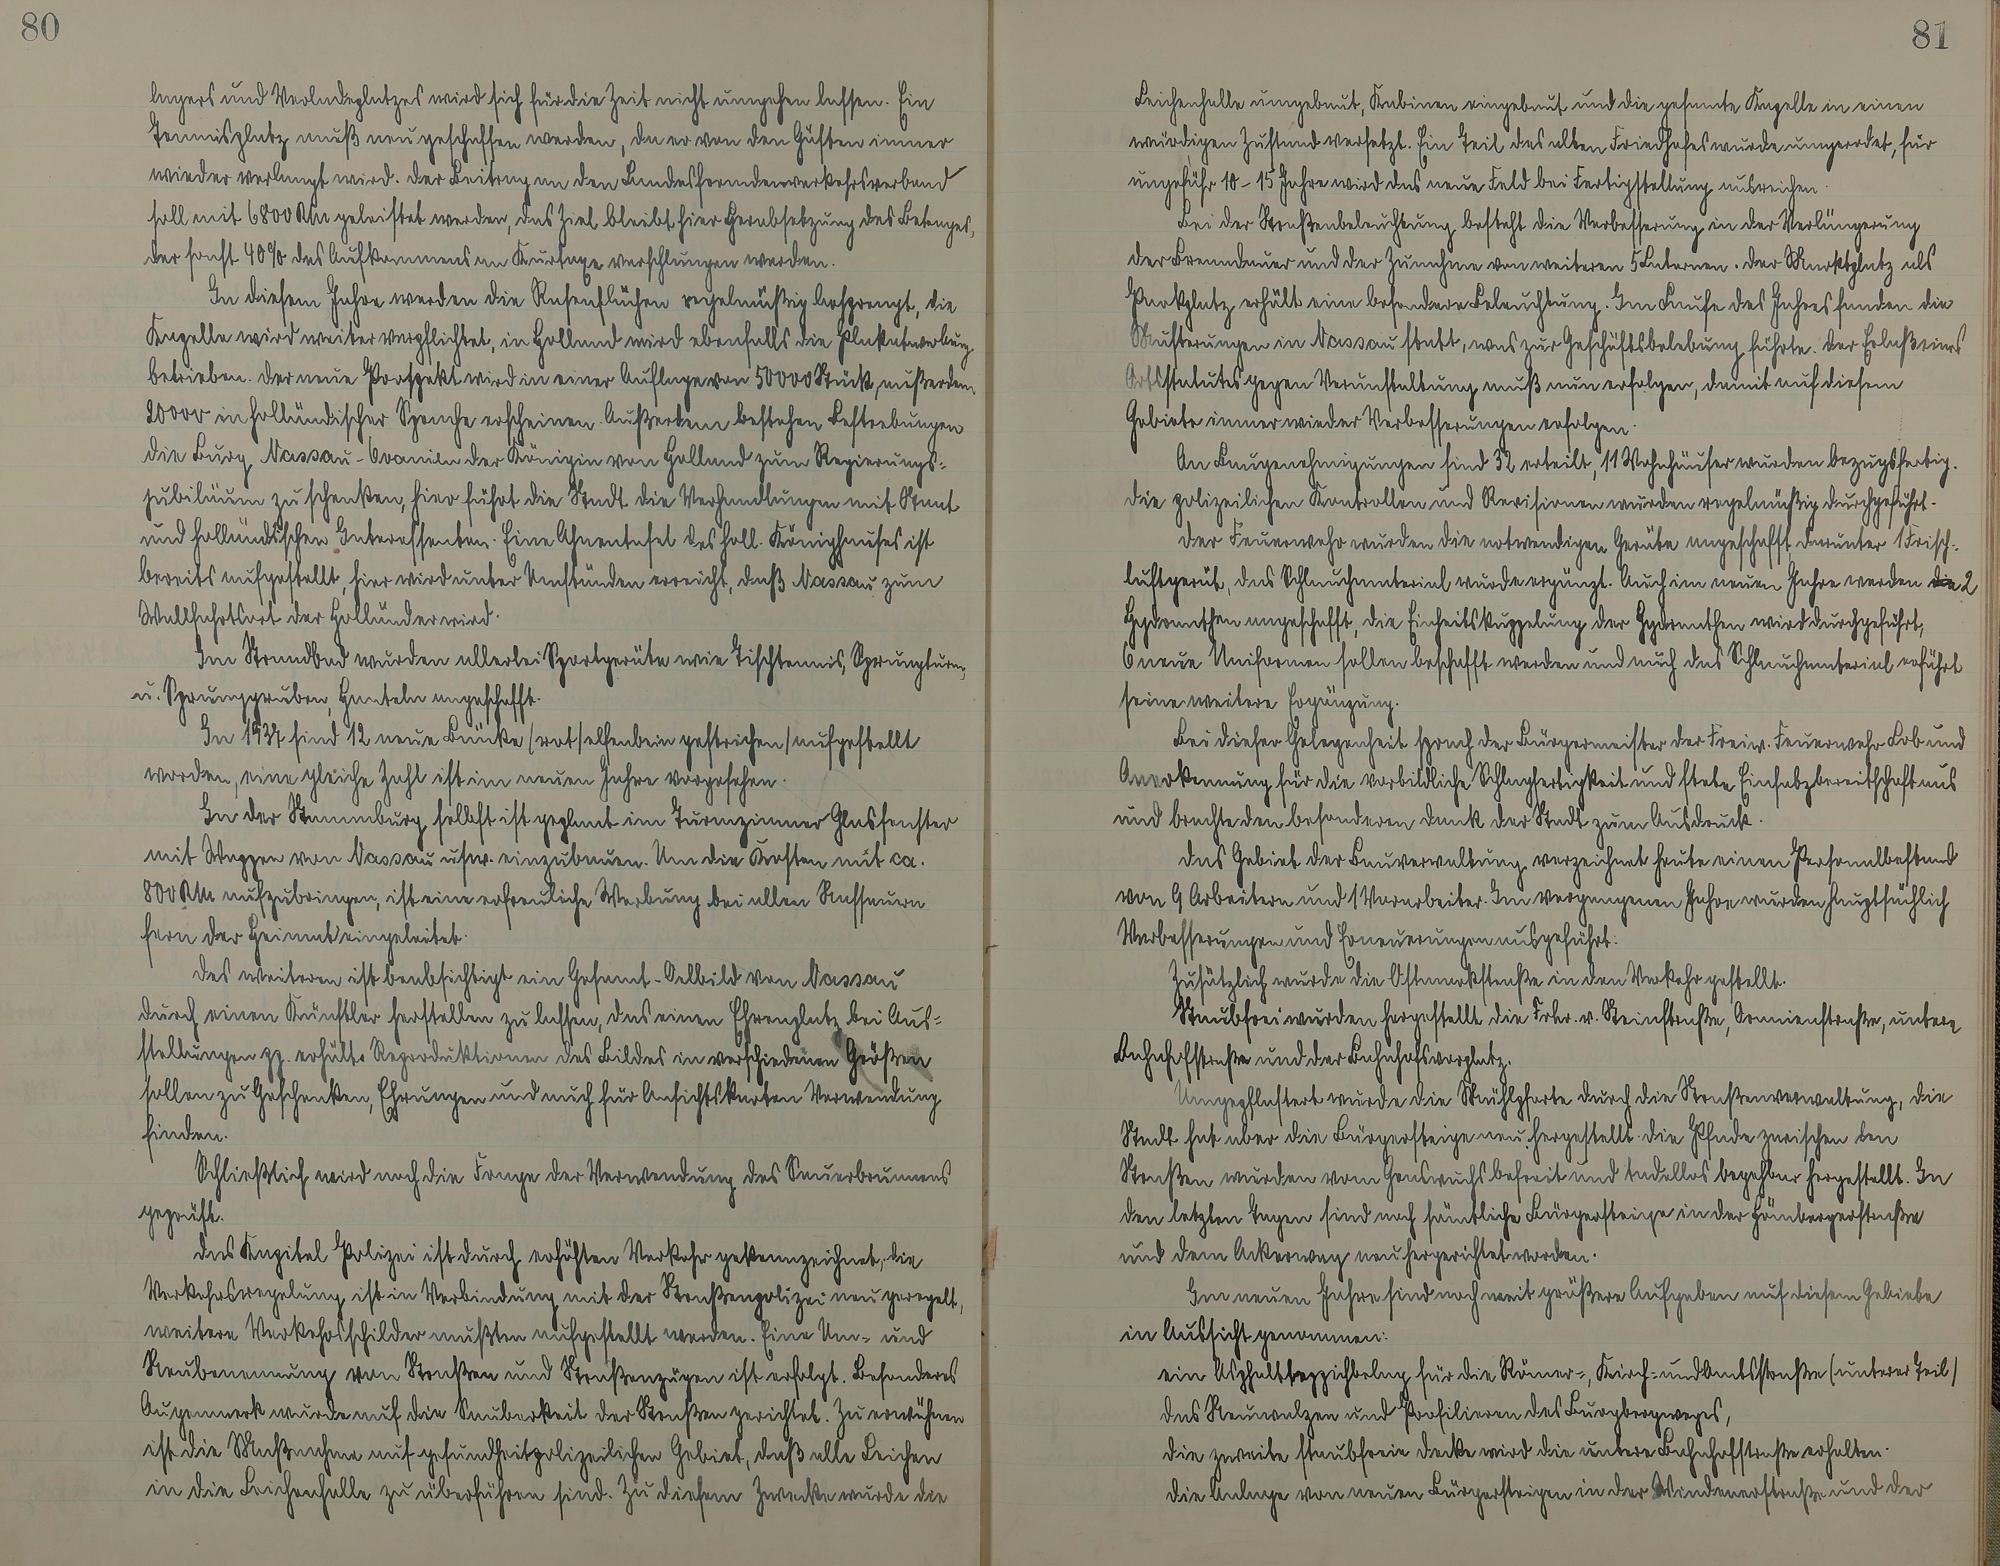 80
lagers und Verladeplatzes wird sich für die Zeit nicht umgehen lassen. Ein
Tennisplatz muß neu geschaffen werden, da er von den Gästen immer
wieder verlangt wird. Der Beitrag an den Landesfremdenverkehrsverband
soll mit 6800 RM geleistet werden, das Ziel bleibt hier Herabsetzung des Betrages,
der sonst 40% des Aufkommens an Kurtaxe verschlungen werden.
In diesem Jahre werden die Rasenflächen regelmäßig besprengt, die
Kapelle wird weiter verpflichtet, in Holland wird ebenfalls die Plakatwerbung
betrieben. Der neue Prospekt wird in einer Auflage von 50000 Stück, außerdem
20000 in holländischer Sprache erscheinen. Außerdem bestehen Bestrebungen
die Burg Nassau-Oranien der Königin von Holland zum Regierungs=
jubiläum zu schenken, hier führt die Stadt die Verhandlungen mit Staat
und holländischen Interessenten. Eine Ahnentafel des holl. Könighauses ist
bereits aufgestellt, hier wird unter Umständen erreicht, daß Nassau zum
Wallfahrtsort der Holländer wird.
Im Strandbad wurden allerlei Sportgeräte wie Tischtennis, Sprungturm,
u. Sprunggruben, Hanteln angeschafft.
In 1937 sind 12 neue Bänke (rot/elfenbein gestrichen) aufgestellt
worden, eine gleiche Zahl ist im neuen Jahre vorgesehen.
In der Stammburg selbst ist geplant im Turmzimmer Glasfenster
mit Wappen von Nassau usw. einzubauen. Um die Kosten mit ca.
800 RM aufzubringen, ist eine erfreuliche Werbung bei allen Nassauern
fern der Heimat eingeleitet.
Des weiteren ist beabsichtigt ein Gesamt-Oelbild von Nassau
durch einen Künstler herstellen zu lassen, das einen Ehrenplatz bei Aus=
stellungen pp. erhält. Reproduktionen des Bildes in verschiedenen Größen
sollen zu Geschenken, Ehrungen und auch für Ansichtskarten Verwendung
finden.
Schließlich wird noch die Frage der Verwendung des Sauerbrunnens
geprüft.
Das Kapitel Polizei ist durch erhöhten Verkehr gekennzeichnet, die
Verkehrsregelung ist in Verbindung mit der Straßenpolizei neu geregelt,
weitere Verkehrsschilder mußten aufgestellt werden. Eine Um= und
Neubenennung von Straßen und Straßenzügen ist erfolgt. Besonderes
Augenmerk wurde auf die Sauberkeit der Straßen gerichtet. Zu erwähnen
ist die Maßnahme auf gesundheitpolizeilichen Gebiet, daß alle Leichen
in die Leichenhalle zu überführen sind. Zu diesem Zwecke wurde die
81
Leichenhalle umgebaut, Kabinen eingebaut und die gesamte Kapelle in einen
würdigen Zustand versetzt. Ein Teil des alten Friedhofes wurde umgerodet, für
ungefähr 10-15 Jahre wird das neue Feld bei Fertigstellung ausreichen.
Bei der Straßenbeleuchtung besteht die Verbesserung in der Verlängerung
der Brenndauer und der Zunahme von weiteren 5 Laternen. Der Marktplatz als
Parkplatz erhält eine besondere Beleuchtung. Im Laufe des Jahres fanden die
Musterungen in Nassau statt, was zur Geschäftsbelebung führte. Der Erlaß eines
Ortsstatutes gegen Verunstaltung muß nun erfolgen, damit auf diesem
Gebiete immer wieder Verbesserungen erfolgen.
An Baugenehmigungen sind 32 erteilt, 11 Wohnhäuser wurden bezugsfertig.
Die polizeilichen Kontrollen und Revisionen wurden regelmäßig durchgeführt.
Der Feuerwehr wurden die notwendigen Geräte angeschafft darunter 1 Frisch=
luftgerät, das Schlauchmaterial wurde ergänzt. Auch im neuen Jahre werden die 2
Hydranthen angeschafft, die Einheitskuppelung der Hydranthen wird durchgeführt,
6 neue Uniformen sollen beschafft werden und auch das Schlauchmaterial erfährt
seine weitere Ergänzung.
Bei dieser Gelegenheit sprach der Bürgermeister der Freiw. Feuerwehr Lob und
Anerkennung für die vorbildliche Schlagfertigkeit und stete Einsatzbereitschaft aus
und brachte den besonderen Dank der Stadt zum Ausdruck.
Das Gebiet der Bauverwaltung verzeichnet heute einen Personalbestand
von 9 Arbeitern und 1 Vorarbeiter. Im vergangenen Jahre wurden hauptsächlich
Verbesserungen und Erneuerungen ausgeführt.
Zusätzlich wurde die Ostmarkstraße in den Verkehr gestellt.
Staubfrei wurden hergestellt die Frhr. v. Steinstraße, Oranienstraße, untere
Bahnhofstraße und der Bahnhofsvorplatz.
Umgepflastert wurde die Mühlpforte durch die Straßenverwaltung, die
Stadt hat aber die Bürgersteige neu hergestellt. Die Pfade zwischen den
Straßen wurden vom Graswuchs befreit und tadellos begehbar hergestellt. In
den letzten Tagen sind noch sämtliche Bürgersteige in der Hömbergerstraße
und dem Ackerweg neu hergerichtet worden.
Im neuen Jahre sind noch weit größere Aufgaben auf diesem Gebiete
in Aussicht genommen:
ein Asphaltteppichbelag für die Römer=, Kirch= und Amtsstraße (unterer Teil)
das Neuwalzen und Profilieren des Burgbergweges,
die zweite staubfreie Decke wird die untere Bahnhofstraße erhalten.
Die Anlage von neuen Bürgersteigen in der Windenerstraße und der